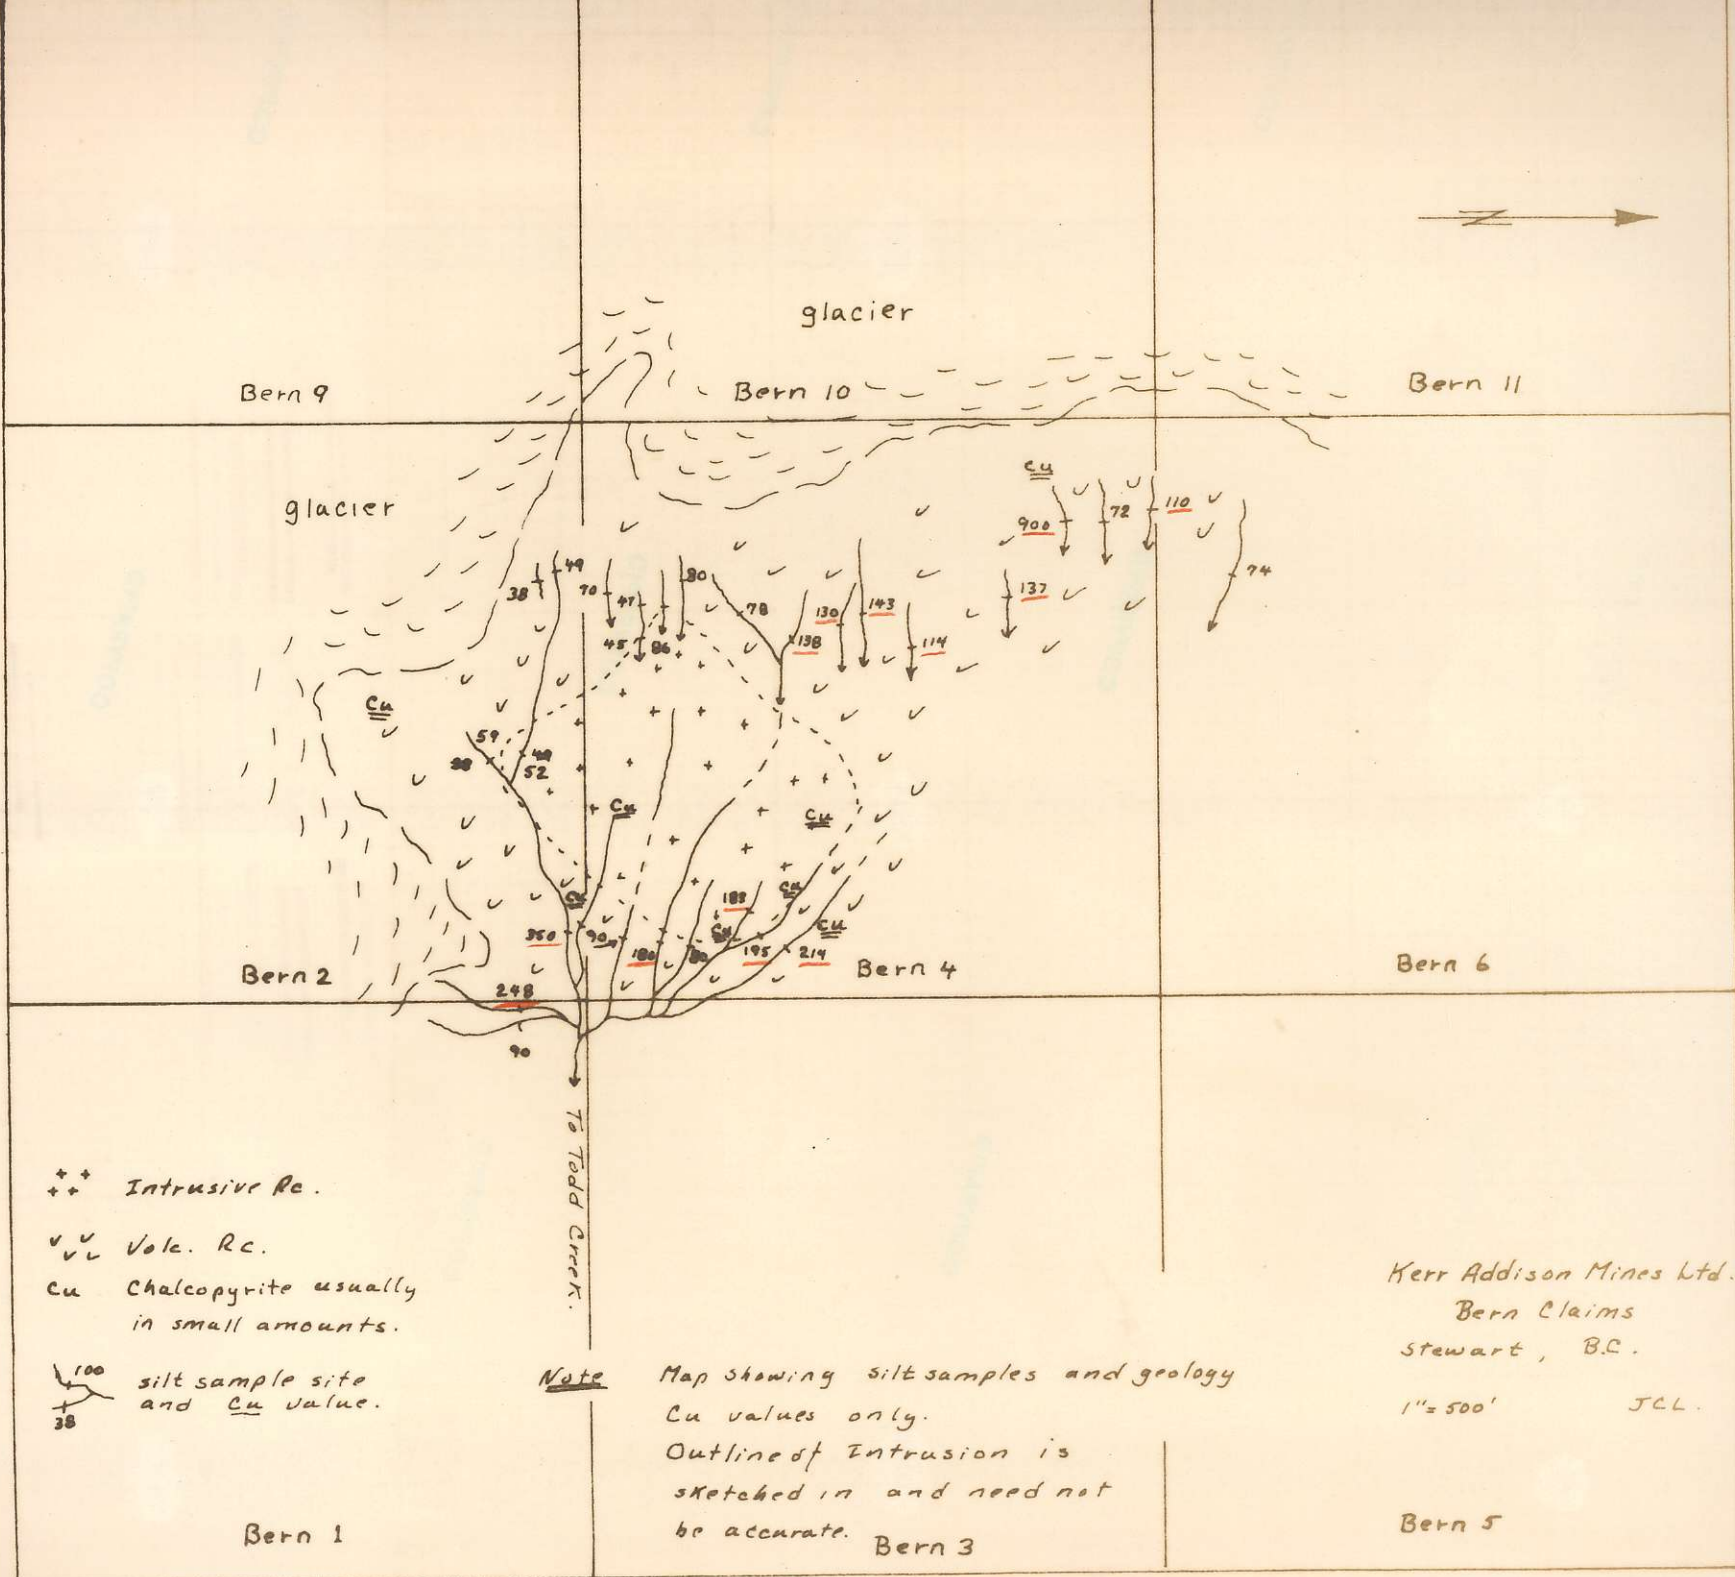 Z
glacier
Bern 9
Bern 10
Bern 11
glacier
Cu
900
72
110
74
137
38
49
70
47
80
78
130
143
45
86
138
114
Cu
59
49
52
Cu
Cu
Cu
Cu
183
Cu
Cu
350
90
180
80
195
214
Bern 2
Bern 4
Bern 6
248
90
To Todd Creek.
Intrusive Rc.
Volc. Rc.
Cu Chalcopyrite usually
in small amounts.
100
38
silt sample site
and Cu value.
Note Map showing silt samples and geology
Cu values only.
Outline of Intrusion is
sketched in and need not
be accurate.
Kerr Addison Mines Ltd.
Bern Claims
Stewart, B.C.
1"= 500' JCL.
Bern 1
Bern 3
Bern 5